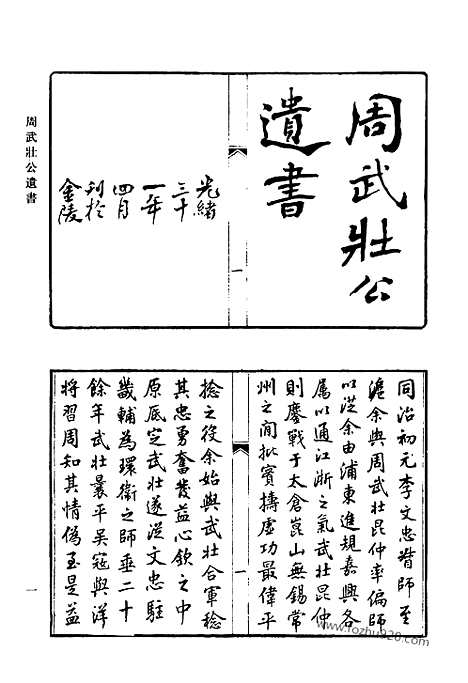 周武壯公遺書
周武壯公
遺書
光緒
三十
一年
四月
刊於
金陵
一
同治初元李文忠督師至
滬余與周武壯昆仲率偏師
以從余由浦東進規嘉興各
屬以通江浙之氣武壯昆仲
則鏖戰于太倉崑山無錫常
州之間批賓擣虛功最偉平
捻之役余始與武壯合軍稔
其忠勇奮發益心欽之中
原底定武壯遂從文忠駐
畿輔為環衛之師垂二十
餘年武壯曩平吳寇與洋
將習周知其情偽至是益
一
一
www.fozhu920.com